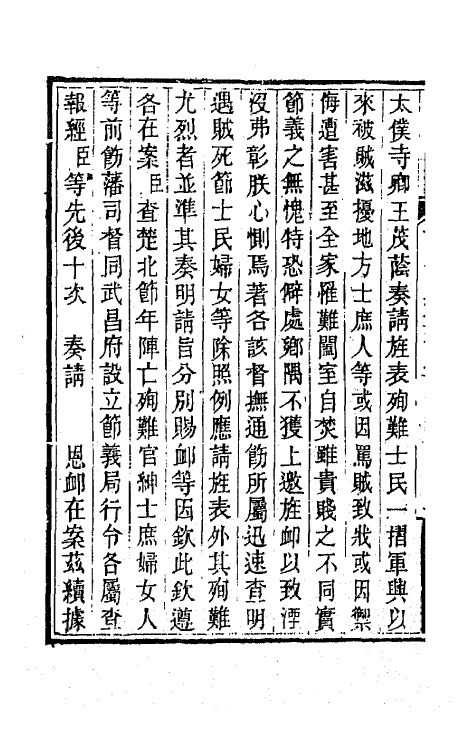 太僕寺卿王茂蔭奏請旌表殉難士民一摺軍興以
來被賊滋擾地方士庶人等或因罵賊致戕或因禦
侮遭害甚至全家罹難闔室自焚雖貴賤之不同實
節義之無愧特恐僻處鄉隅不獲上邀旌卹以致湮
沒弗彰朕心惻焉著各該督撫通飭所屬迅速查明
遇賊死節士民婦女等除照例應請旌表外其殉難
尤烈者並準其奏明請旨分別賜卹等因欽此欽遵
各在案臣查楚北節年陣亡殉難官紳士庶婦女人
等前飭藩司督同武昌府設立節義局行令各屬查
報經臣等先後十次　奏請　　恩卹在案茲續據